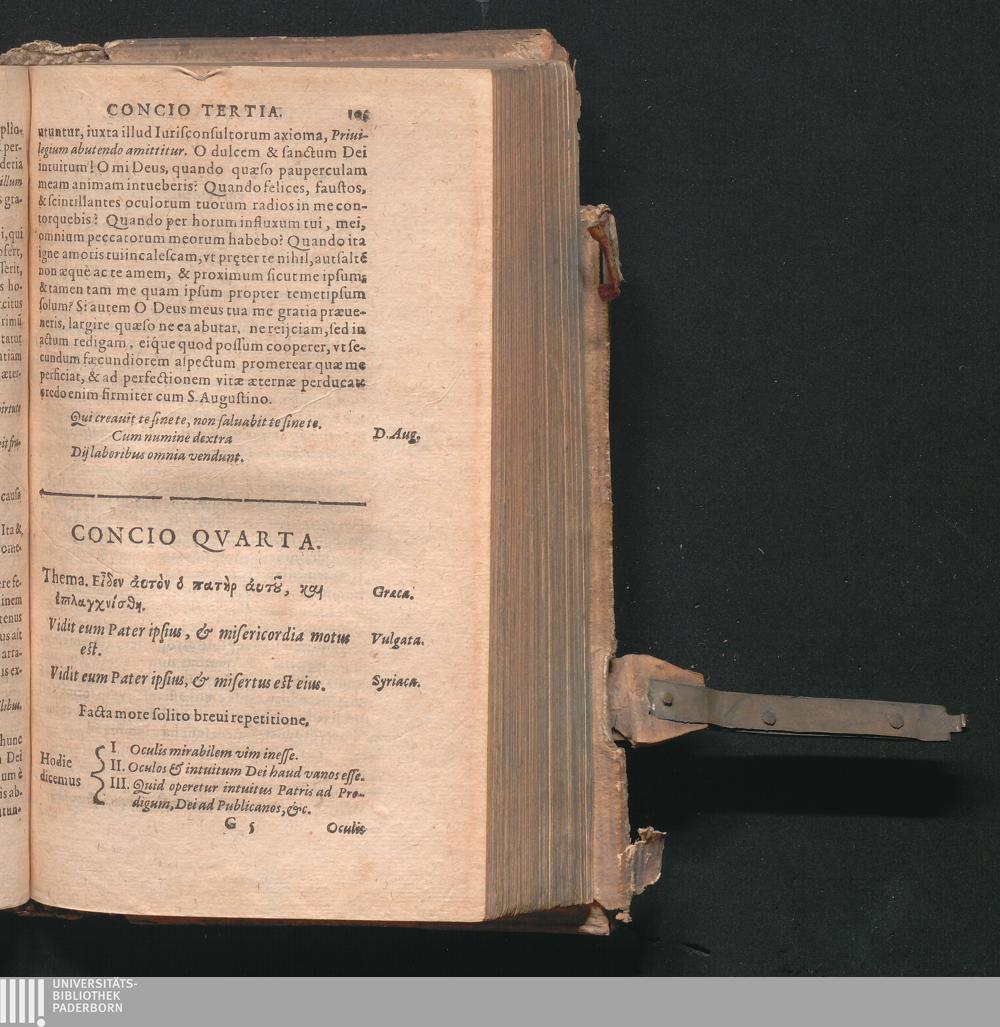 CONCIO TERTIA. 105
utuntur, iuxta illud Iuriſconſultorum axioma, Priui-
legium abutendo amittitur. O dulcem & ſanctum Dei
intuitum! O mi Deus, quando quæſo pauperculam
meam animam intueberis? Quando felices, fauſtos,
& ſcintillantes oculorum tuorum radios in me con-
torquebis? Quando per horum influxum tui, mei,
omnium peccatorum meorum habebo? Quando ita
igne amoris tui incaleſcam, vt pręter te nihil, aut ſaltē
non æquè ac te amem, & proximum ſicut me ipſum,
& tamen tam me quam ipſum propter temetipſum
ſolum? Si autem O Deus meus tua me gratia præue-
neris, largire quæſo ne ea abutar, ne reijciam, ſed in
actum redigam, eique quod poſſum cooperer, vt ſe-
cundum fæcundiorem aſpectum promerear quæ me
perficiat, & ad perfectionem vitæ æternæ perducat:
credo enim firmiter cum S. Auguſtino.
Qui creauit te ſine te, non ſaluabit te ſine te.
D. Aug.
Cum numine dextra
Dij laboribus omnia vendunt.
CONCIO QVARTA.
Thema. Εἶδεν ἀυτὸν ὁ πατὴρ ἀυτοῦ, καὶ
Græca.
ἐσπλαγχνίσθη.
Vidit eum Pater ipſius, & miſericordia motus
Vulgata.
eſt.
Vidit eum Pater ipſius, & miſertus eſt eius.
Syriaca.
Facta more ſolito breui repetitione,
I Oculis mirabilem vim ineſſe.
Hodie
II. Oculos & intuitum Dei haud vanos eſſe.
dicemus
III. Quid operetur intuitus Patris ad Pro-
digum, Dei ad Publicanos, &c.
G 5 Oculis
UNIVERSITÄTS-
BIBLIOTHEK
PADERBORN